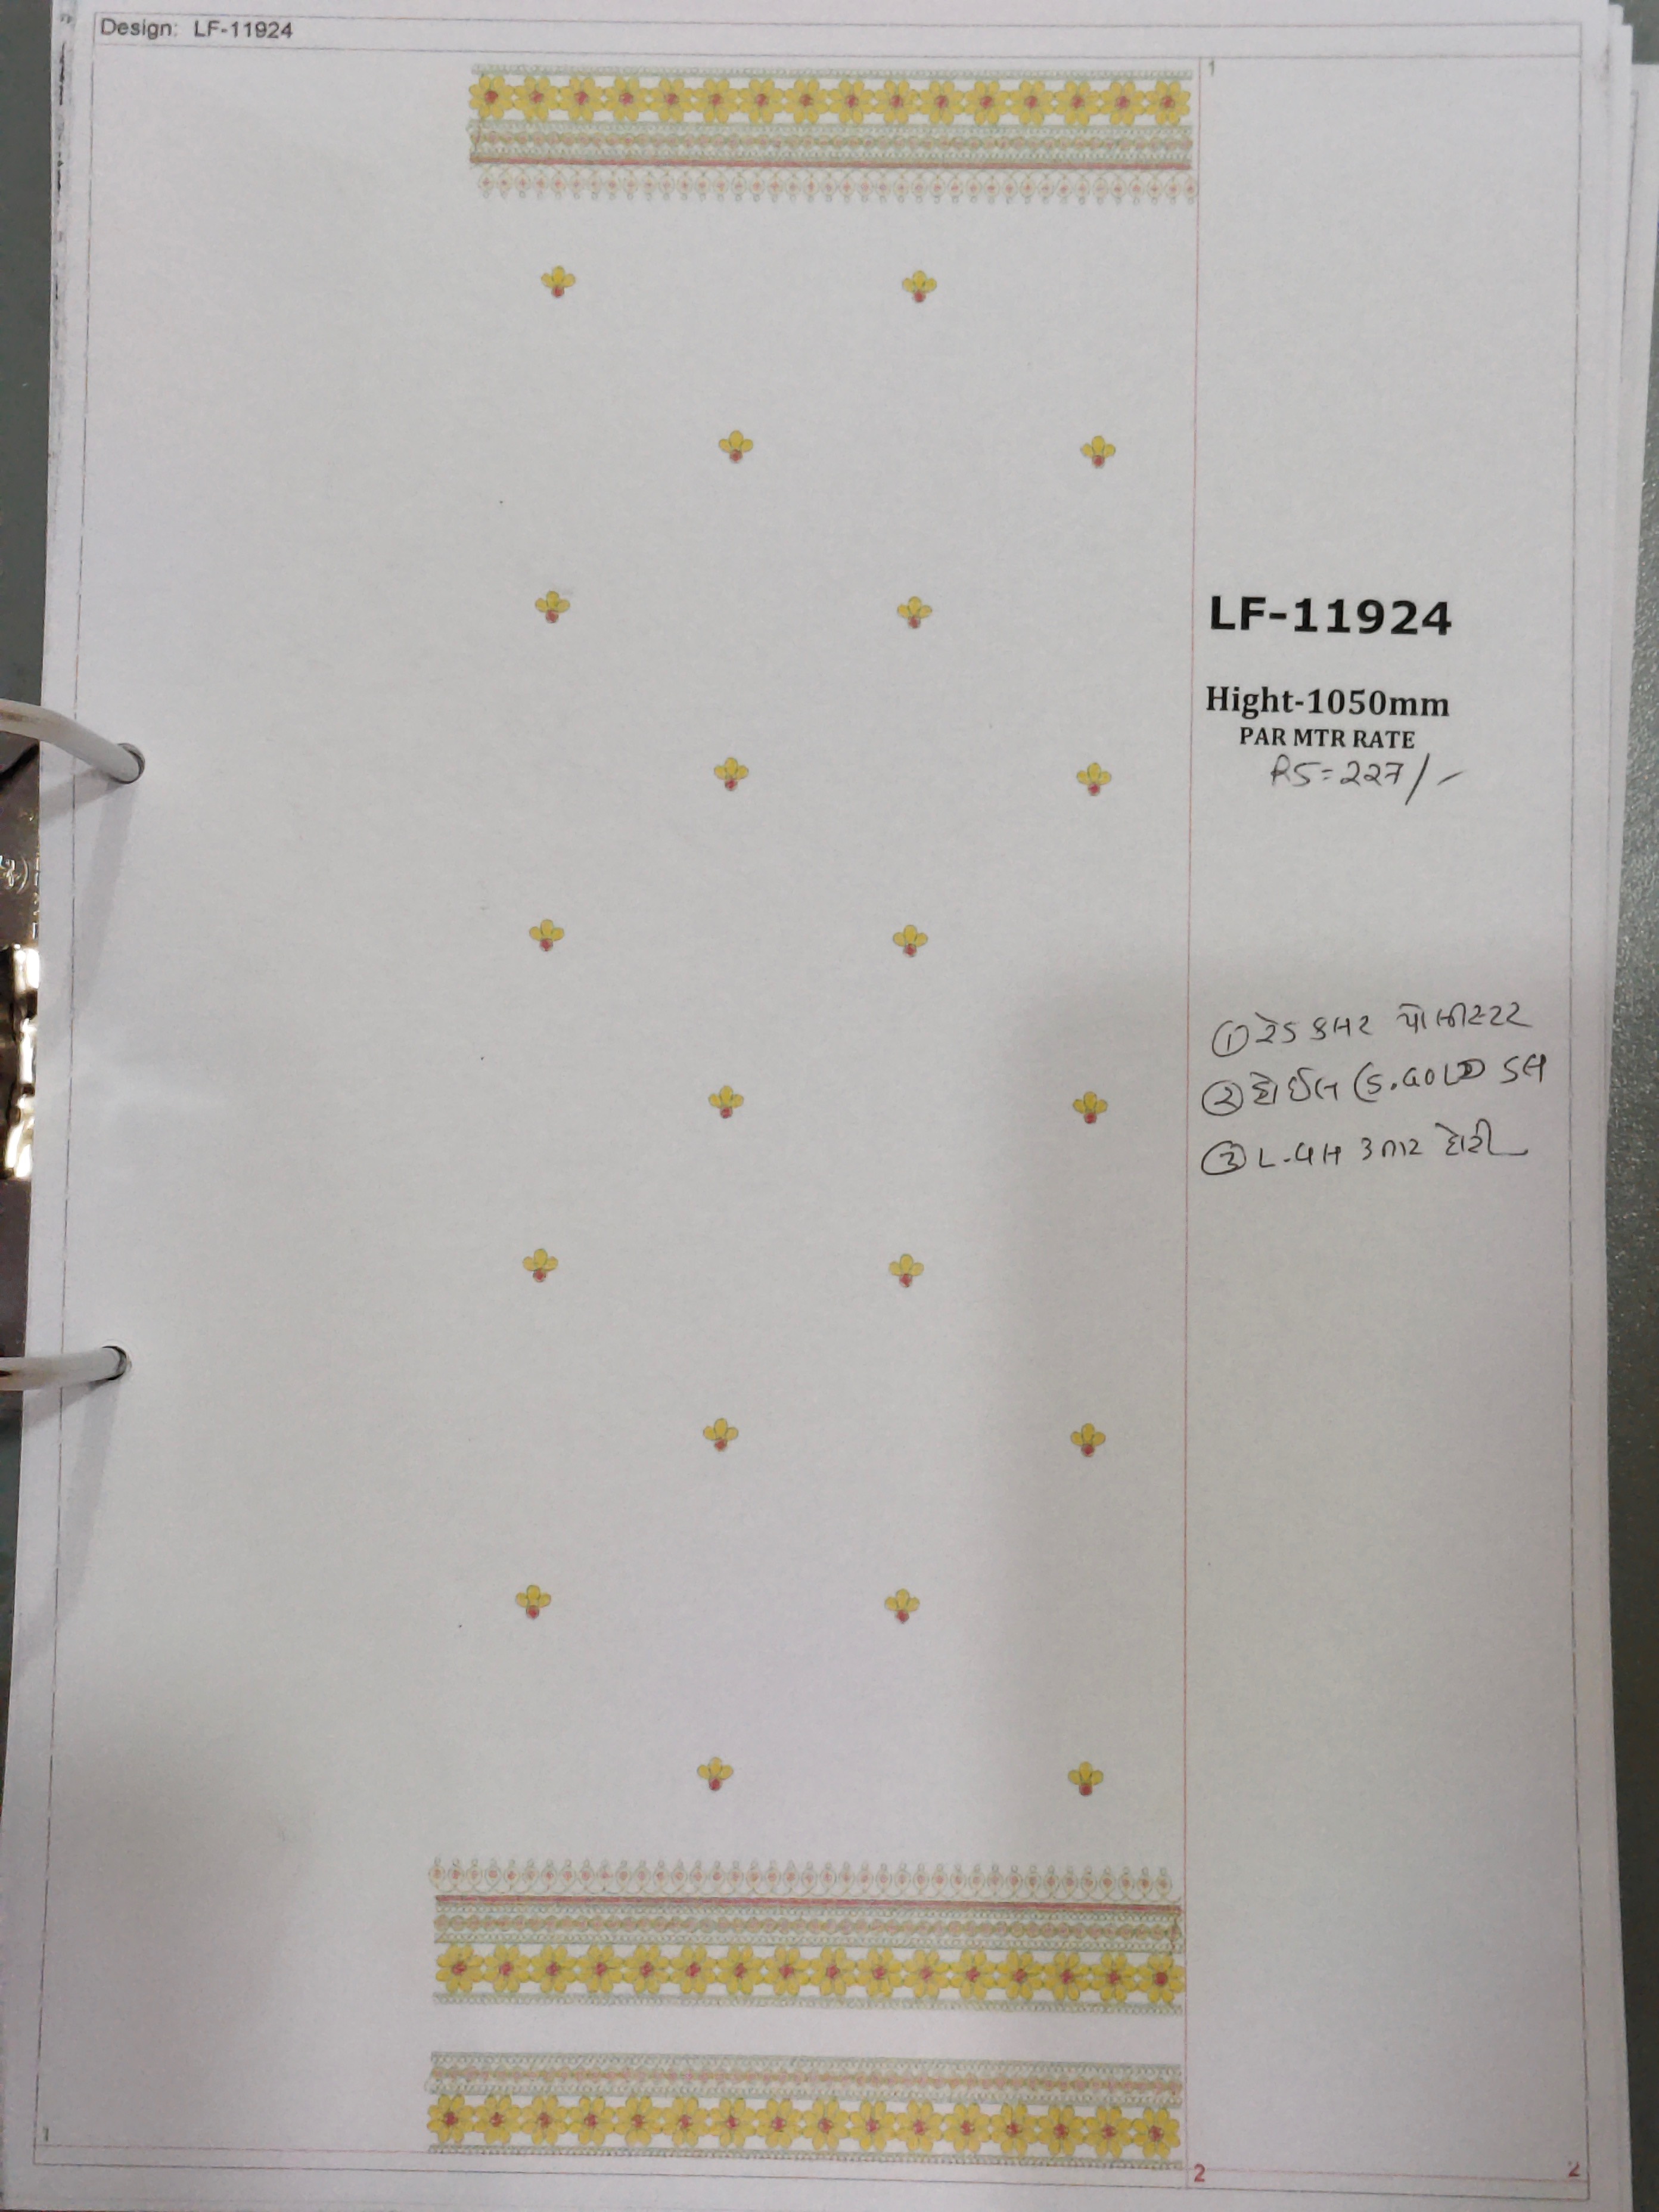 Design: LF-11924
1
LF-11924
Hight-1050mm
PAR MTR RATE
RS=227/-
① રેડ કલર પોલીસ્ટર
② S.GOLD
③ 3 તાર દોરી
1
2
2